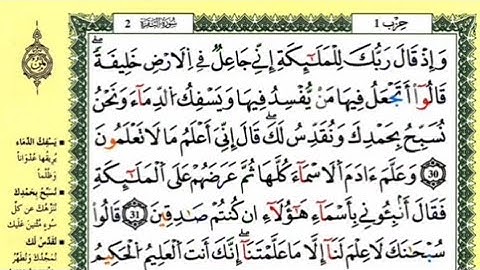 حِزْبُ 1
سُورَةُ الْبَقَرَةِ 2
وَإِذْ قَالَ رَبُّكَ لِلْمَلَٰٓئِكَةِ إِنِّي جَاعِلٌ فِي الْأَرْضِ خَلِيفَةً
قَالُوٓاْ أَتَجْعَلُ فِيهَا مَن يُفْسِدُ فِيهَا وَيَسْفِكُ الدِّمَآءَ وَنَحْنُ
نُسَبِّحُ بِحَمْدِكَ وَنُقَدِّسُ لَكَ قَالَ إِنِّيَ أَعْلَمُ مَا لَا تَعْلَمُونَ
30 وَعَلَّمَ ءَادَمَ الْأَسْمَآءَ كُلَّهَا ثُمَّ عَرَضَهُمْ عَلَى الْمَلَٰٓئِكَةِ
فَقَالَ أَنۢبِـُٔونِي بِأَسْمَآءِ هَٰٓؤُلَآءِ ان كُنتُمْ صَٰدِقِينَ 31 قَالُواْ
سُبْحَٰنَكَ لَا عِلْمَ لَنَآ إِلَّا مَا عَلَّمْتَنَآ إِنَّكَ أَنتَ الْعَلِيمُ الْحَكِيمُ
يَسْفِكُ الدِّمَاء
يُرِيقُهَا عُدْوَاناً
وَظُلْماً
نُسَبِّحُ بِحَمْدِكَ
نُنَزِّهُكَ عن كلِّ
سُوءٍ مُثْنِينَ عَلَيك
نُقَدِّسُ لَكَ
نُمَجِّدُكَ وَنُطَهِّرُ